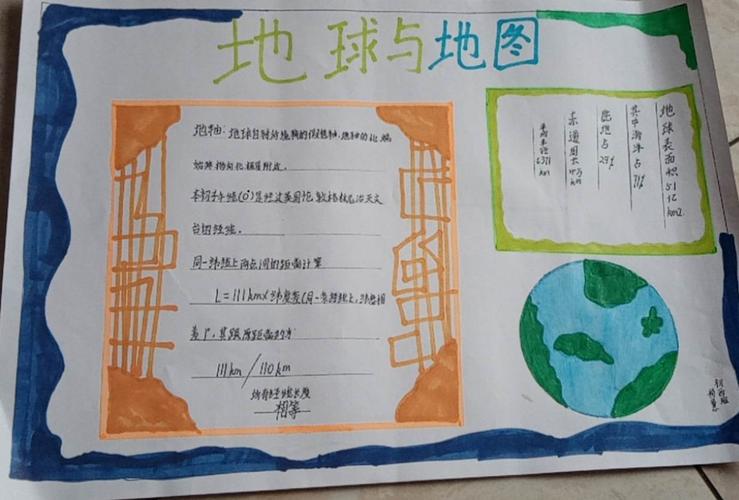 地球与地图
地轴:地球自转所绕转的假想轴,地轴的北端
始终指向北极星附近。
本初子午线(0°)是经过英国伦敦格林尼治天文
台的经线。
同一线上两点间的距离计算
L=111km×
111km/110km
所有经线长度
相等
地球表面积5.1亿km2
其中海洋占71%
陆地占29%
赤道周长4万km
平均半径6371km